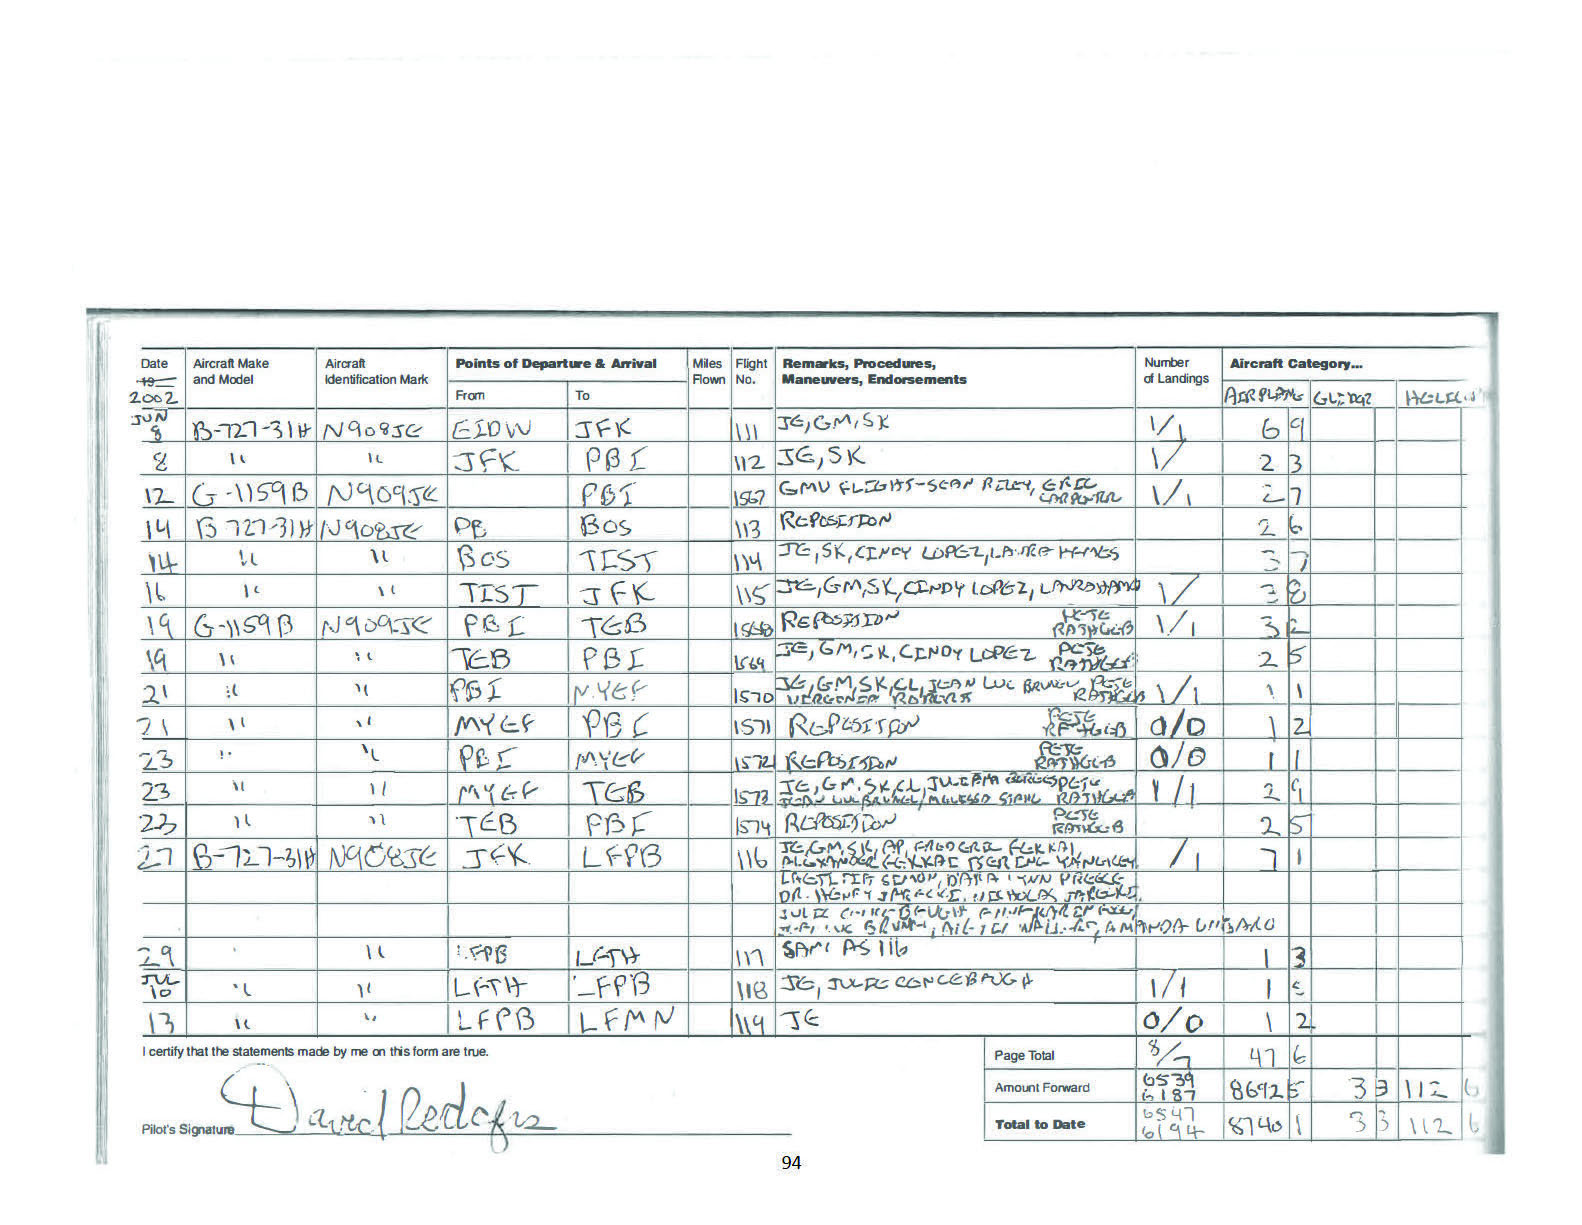 Date Aircraft Make Aircraft Points of Departure & Arrival Miles Flight Remarks, Procedures, Number Aircraft Category...
19 and Model Identification Mark Flown No. Maneuvers, Endorsements of Landings
2002 From To AIRPLANE GLIDER
JUN
8 B-727-31H N908JE EIDW JFK 111 JE, GM, SK 1/1 6 9
8 " " JFK PBI 112 JE, SK 1/ 2 3
12 G-1159B N909JE PBI 1567 GMU FLIGHT-SEAN RILEY, ERIC CARPENTER 1/1 2 7
14 B-727-31H N908JE PB BOS 113 REPOSITION 2 6
14 " " BOS TIST 114 JE, SK, CINDY LOPEZ, 3 7
16 " " TIST JFK 115 JE, GM, SK, CINDY LOPEZ, 1/ 3 8
19 G-1159B N909JE PBI TEB 1568 REPOSITION PETE RATHGEB 1/1 3 2
19 " " TEB PBI 1569 JE, GM, SK, CINDY LOPEZ PETE RATHGEB 2 5
21 " " PBI MYEF 1570 JE, GM, SK, CL, JEAN LUC BRUNEL PETE RATHGEB 1/1 1 1
21 " " MYEF PBI 1571 REPOSITION PETE RATHGEB 0/0 1 2
23 " " PBI MYEF 1572 REPOSITION PETE RATHGEB 0/0 1 1
23 " " MYEF TEB 1573 JE, GM, SK, CL, PETE 1/1 2 9
JEAN LUC BRUNEL, RATHGEB
23 " " TEB PBI 1574 REPOSITION PETE RATHGEB 2 5
27 B-727-31H N908JE JFK LFPB 116 JE, GM, SK, AP, FREDERIC FEKKAI, /1 7 1
ALEXANDER FEKKAI
DR. HENRY JARECKI, NICHOLAS JARECKI,
29 " LFPB LFTH 117 SAME AS 116 1 3
JUL
10 " " LFTH LFPB 118 JE, JULIE 1/1 1
13 " " LFPB LFMN 119 JE 0/0 1 2
I certify that the statements made by me on this form are true. Page Total 8/7 47 6
Amount Forward 6539 6187 8692 5 3 3 112 6
Pilot's Signature David Rodgers Total to Date 6547 6194 8740 1 3 3 112 6
94